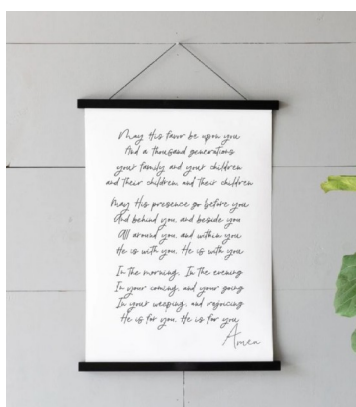 May His favor be upon you
And a thousand generations
your family and your children
and their children and their children
May His presence go before you
And behind you, and beside you
All around you, and within you
He is with you, He is with you
In the morning, In the evening
In your coming, and your going
In your weeping, and rejoicing
He is for you, He is for you
Amen